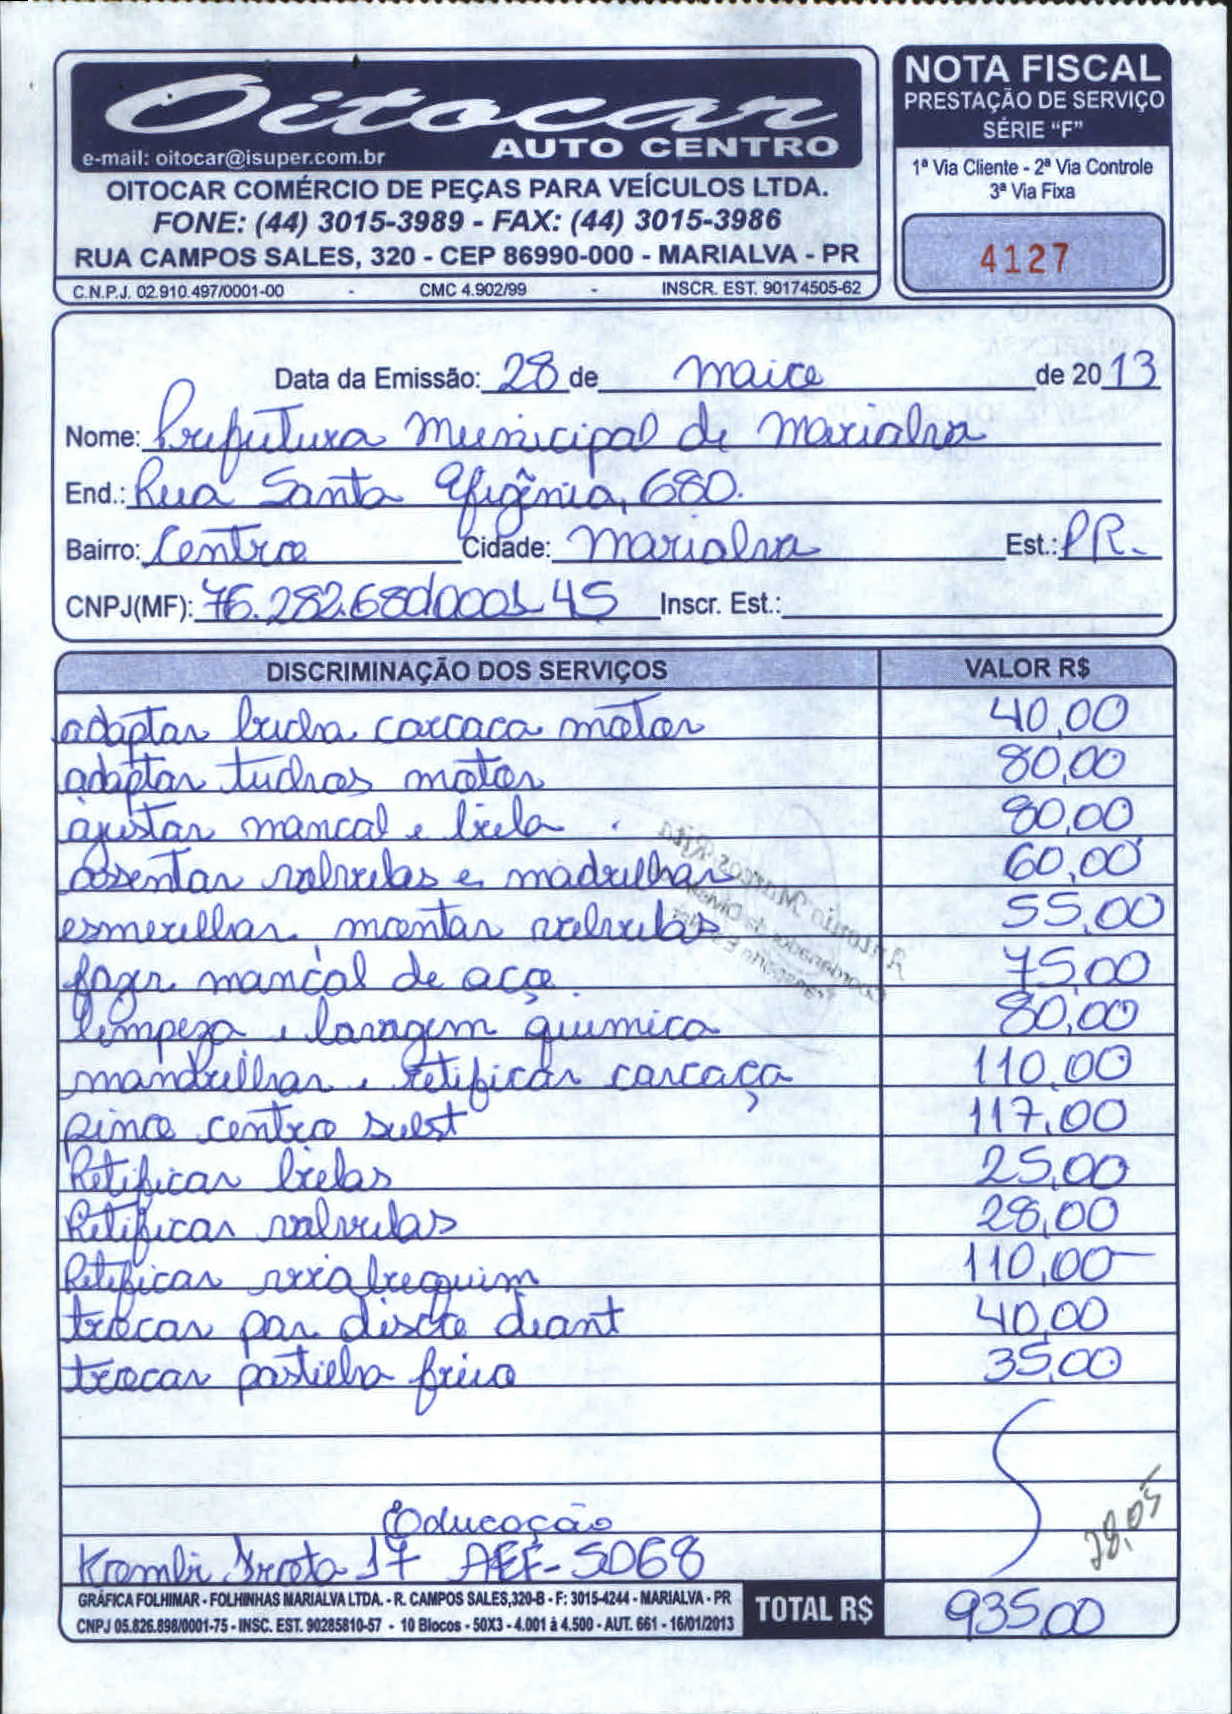 Oitocar
AUTO CENTRO
e-mail: oitocar@isuper.com.br
OITOCAR COMÉRCIO DE PEÇAS PARA VEÍCULOS LTDA.
FONE: (44) 3015-3989 - FAX: (44) 3015-3986
RUA CAMPOS SALES, 320 - CEP 86990-000 - MARIALVA - PR
C.N.P.J. 02.910.497/0001-00 - CMC 4.902/99 - INSCR. EST. 90174505-62
NOTA FISCAL
PRESTAÇÃO DE SERVIÇO
SÉRIE "F"
1ª Via Cliente - 2ª Via Controle
3ª Via Fixa
4127
Data da Emissão: 28 de maio de 2013
Nome: Prefeitura Municipal de Marialva
End.: Rua Santa Efigênia, 680.
Bairro: Centro Cidade: Marialva Est.: PR.
CNPJ(MF): 76.282.680/0001 45 Inscr. Est.:
DISCRIMINAÇÃO DOS SERVIÇOS VALOR R$
adaptar bucha carcaca motor 40,00
adaptar tuchos motor 80,00
ajustar mancal e biela 80,00
assentar valvulas e madrilhar 60,00
esmerilhar, montar valvulas 55,00
fazer mancal de aço. 75,00
limpeza e lavagem quimica 80,00
mandrilhar e retificar carcaça 110,00
pino centro subst 117,00
Retificar bielas 25,00
Retificar valvulas 28,00
Retificar virabrequim 110,00
trocar par disco diant 40,00
trocar pastilha freio 35,00
Educação
Kombi Frota 17 AEF-5068
28,05
GRÁFICA FOLHIMAR - FOLHINHAS MARIALVA LTDA. - R. CAMPOS SALES,320-B - F: 3015-4244 - MARIALVA - PR
CNPJ 05.826.898/0001-75 - INSC. EST. 90285810-57 - 10 Blocos - 50X3 - 4.001 à 4.500 - AUT. 661 - 16/01/2013
TOTAL R$ 935,00